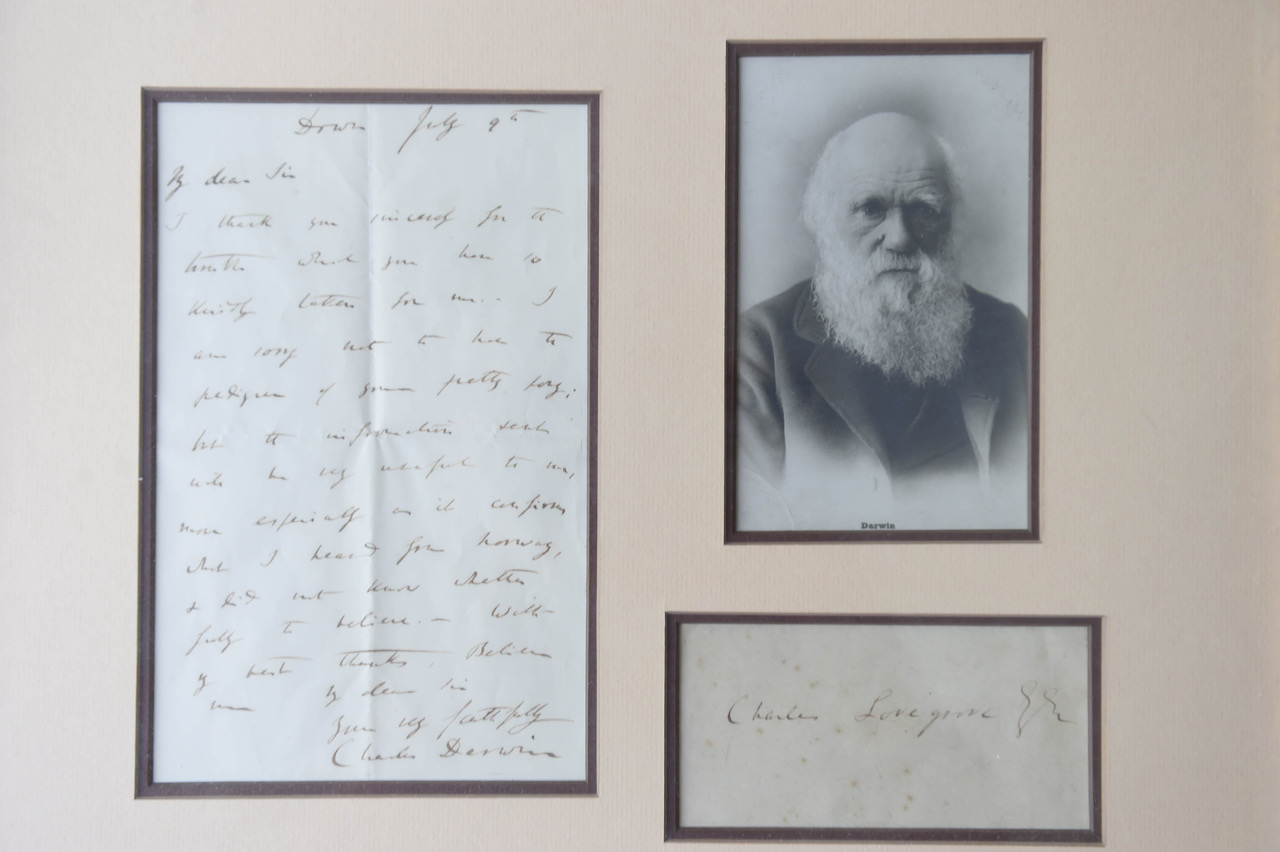 Down July 9th
My dear Sir
I thank you sincerely for the
trouble which you have so
kindly taken for me.. I
am sorry not to have the
pedigree of your pretty dog;
but the information sent
will be very useful to me,
more especially as it confirms
what I heard from Norway,
& did not know whether
fully to believe. — With
my best thanks, Believe
me My dear Sir
Yours very faithfully
Charles Darwin
Darwin
Charles Lovegrove Esq